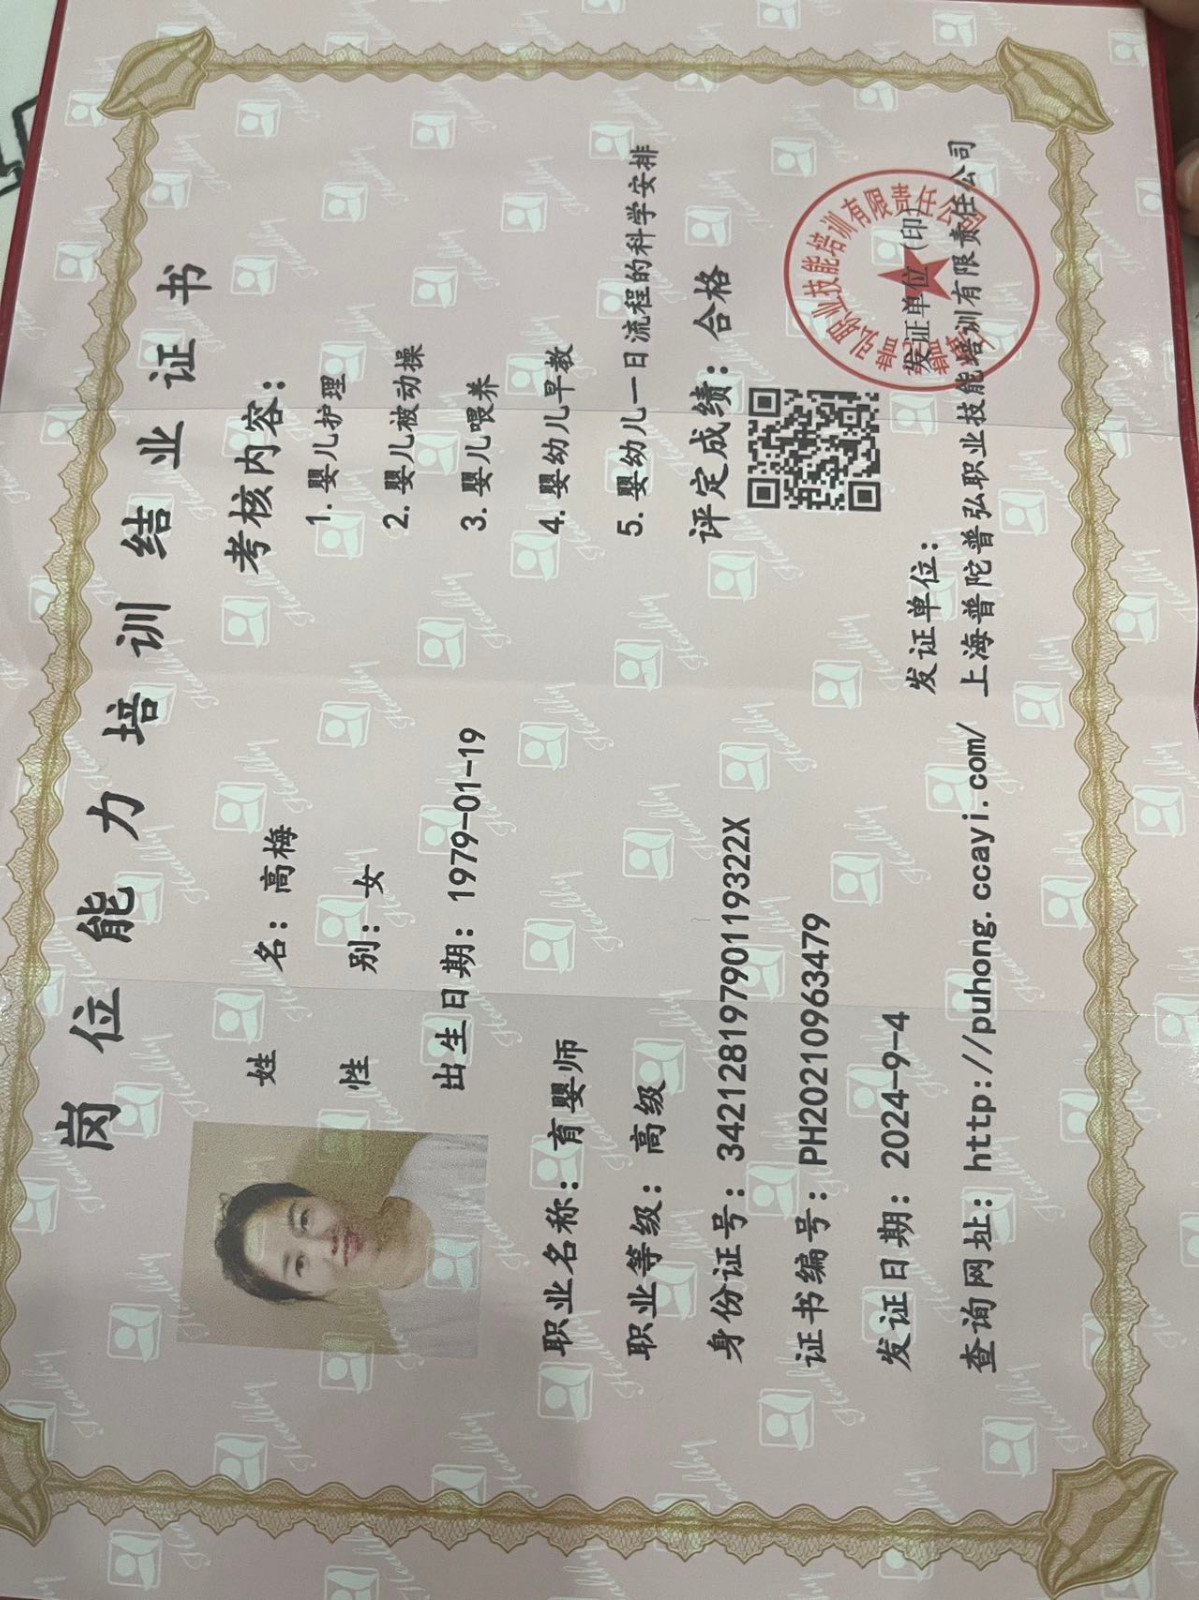 岗位能力培训结业证书
姓名：高梅
性别：女
出生日期：1979-01-19
职业名称：育婴师
职业等级：高级
身份证号：34212819790119322X
证书编号：PH20210963479
发证日期：2024-9-4
查询网址：http://puhong.ccayi.com/
考核内容：
1.婴儿护理
2.婴儿被动操
3.婴儿喂养
4.婴幼儿早教
5.婴幼儿一日流程的科学安排
评定成绩：合格
发证单位（印）
发证单位：
上海普陀普弘职业技能培训有限责任公司